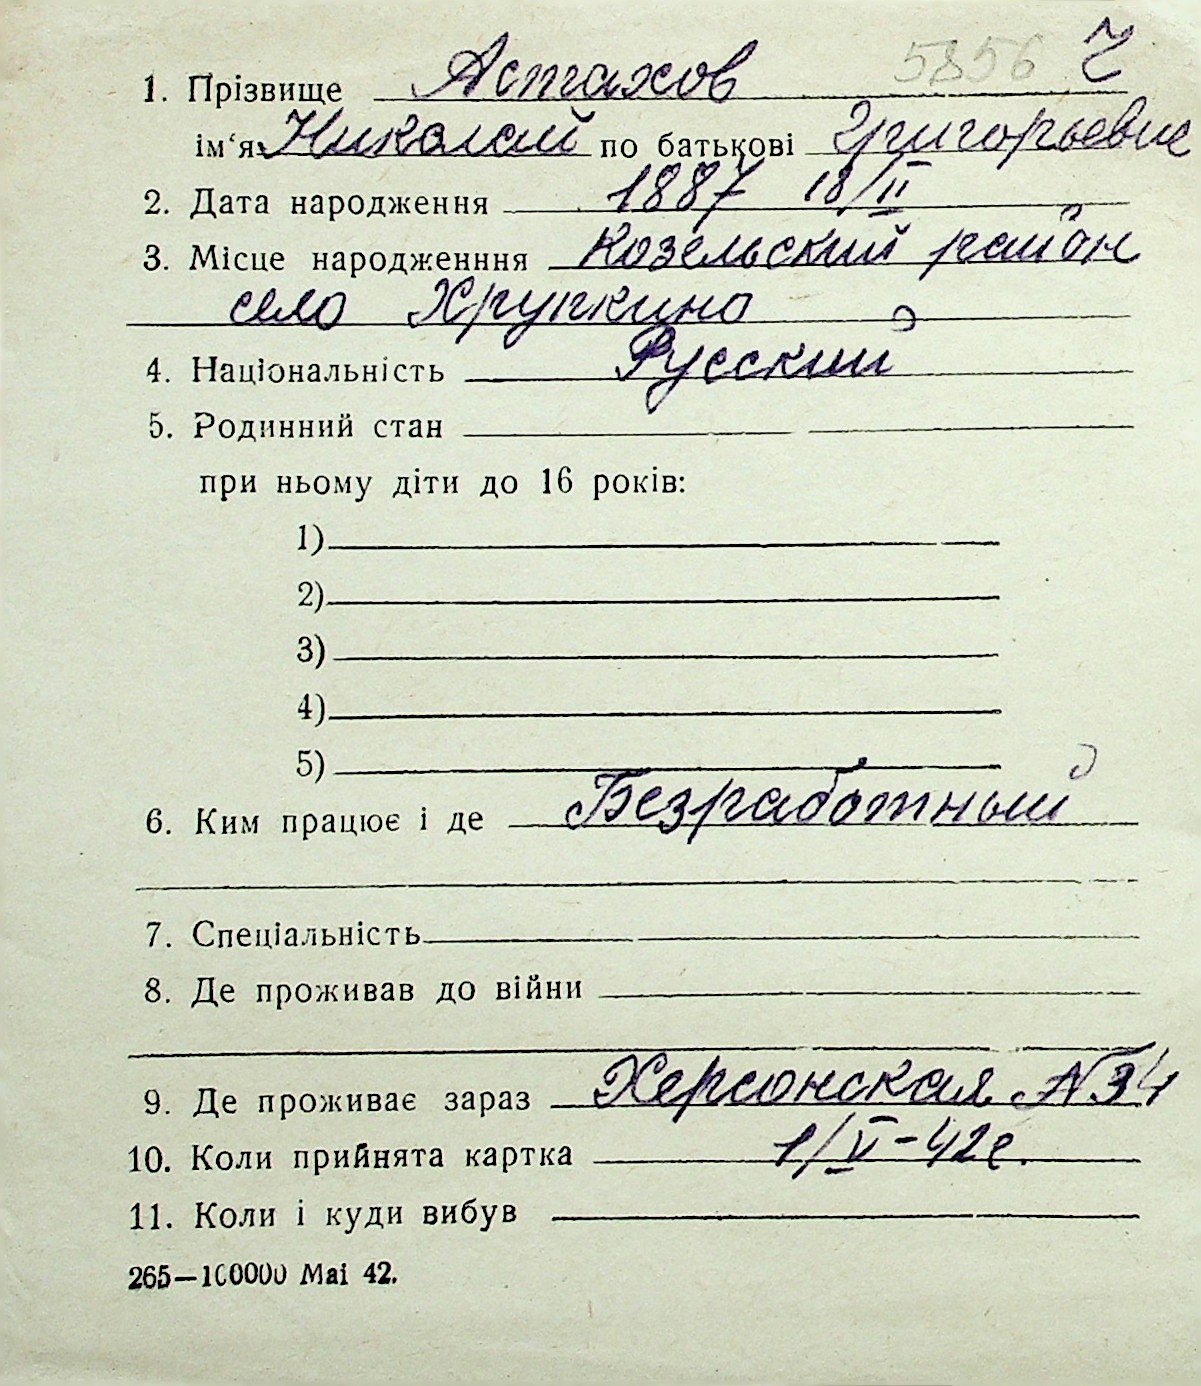 5856 Ч
1. Прізвище Астахов
ім‘я Николай по батькові Григорьевич
2. Дата народження 1887 18/II
3. Місце народженння Козельский район
село Хрупкино
4. Національність Русский
5. Родинний стан
при ньому діти до 16 років:
1)
2)
3)
4)
5)
6. Ким працює і де Безработный
7. Спеціальність
8. Де проживав до війни
9. Де проживає зараз Херсонская №34
10. Коли прийнята картка 1/V-42г.
11. Коли і куди вибув
265—100000 Mai 42.